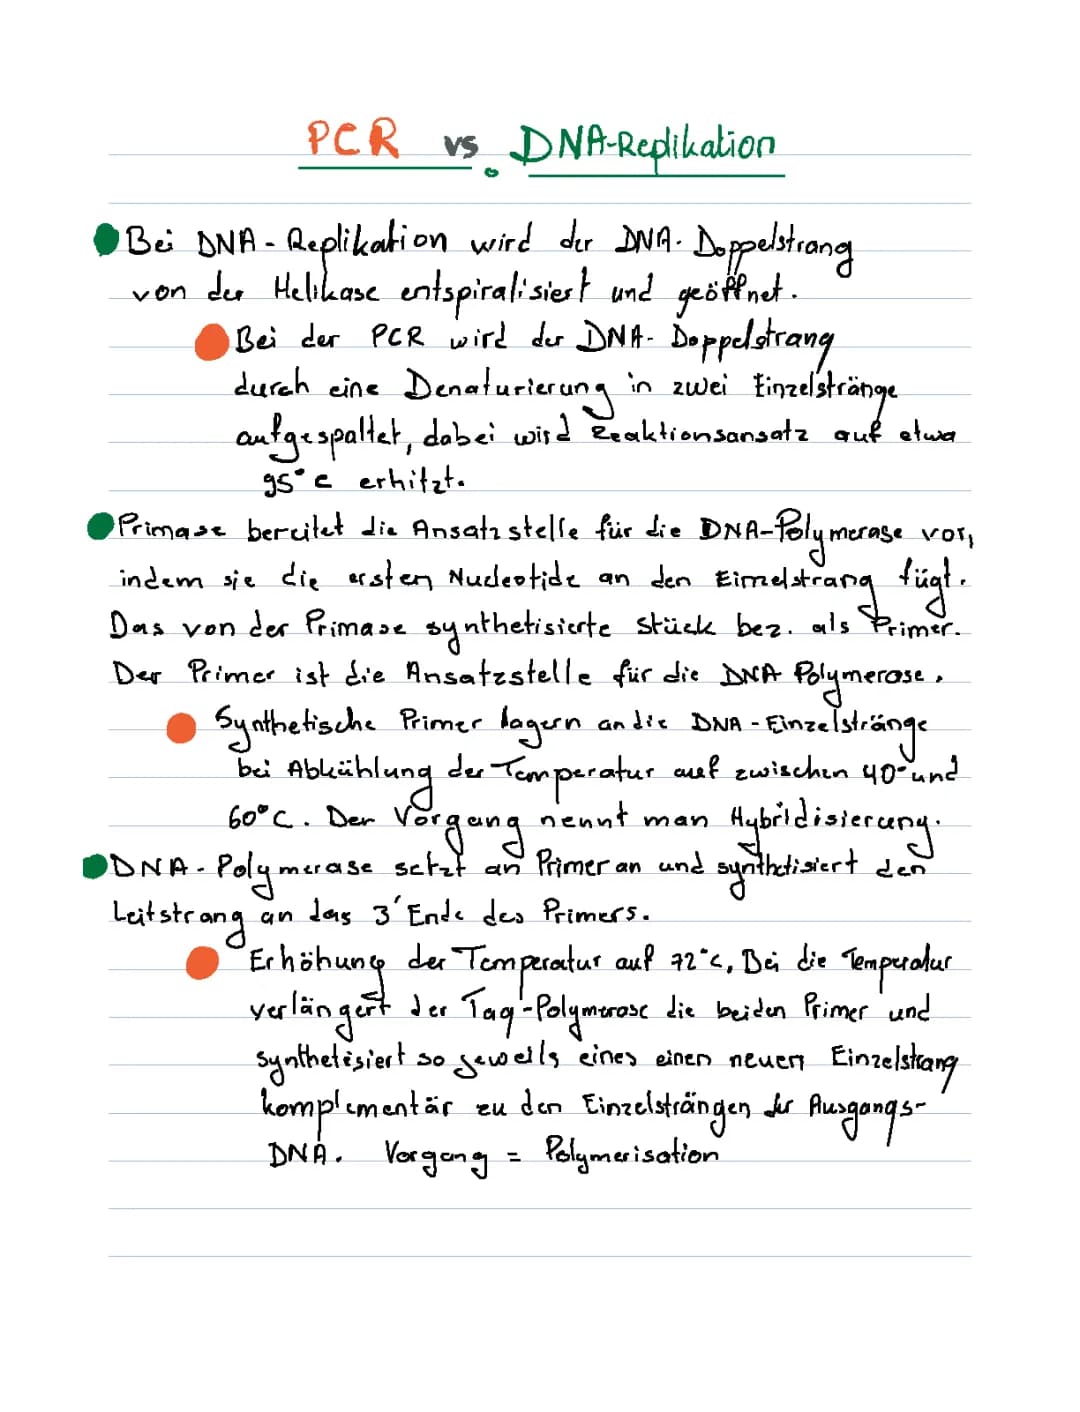 PCR vs. DNA-Replikation
Bei DNA-Replikation wird der DNA-Doppelstrang
von der Helikase entspiralisiert und geöffnet.
Bei der PCR wird der DNA-Doppelstrang
durch eine Denaturierung in zwei Einzelstränge
aufgespaltet, dabei wird Reaktionsansatz auf etwa
95°C erhitzt.
Primase bereitet die Ansatzstelle für die DNA-Polymerase vor,
indem sie die ersten Nucleotide an den Einzelstrang fügt.
Das von der Primase synthetisierte Stück bez. als Primer.
Der Primer ist die Ansatzstelle für die DNA Polymerase.
Synthetische Primer lagern an die DNA-Einzelstränge
bei Abkühlung der Temperatur auf zwischen 40° und
60°C. Der Vorgang nennt man Hybridisierung.
DNA-Polymerase setzt an Primer an und synthetisiert den
Leitstrang an das 3' Ende des Primers.
Erhöhung der Temperatur auf 72°C, Bei die Temperatur
verlängert der Taq-Polymerase die beiden Primer und
synthetisiert so jeweils eines einen neuen Einzelstrang
komplementär zu den Einzelsträngen der Ausgangs-
DNA. Vorgang = Polymerisation